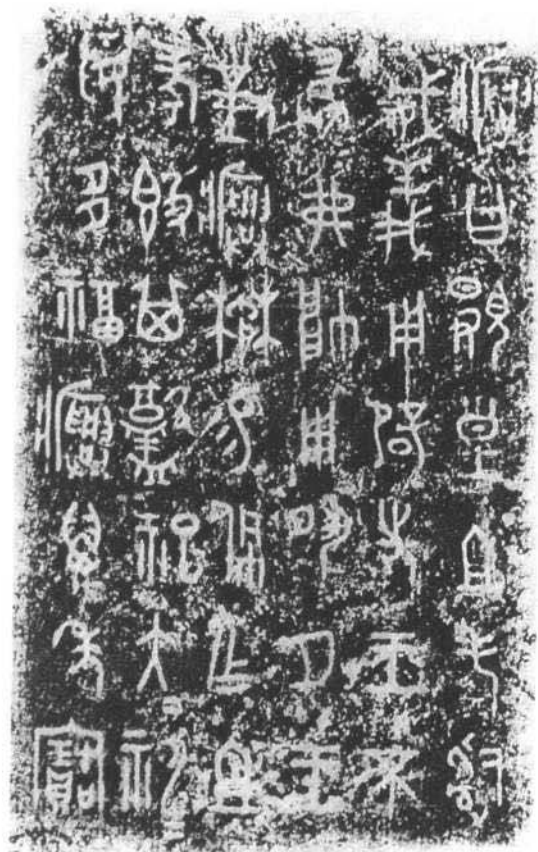 𤼈曰顯皇且考𤔲
威義用辟先王不
敢弗帥用夙夕王
對𤼈楙易佩乍且
考簋其𩱧祀大神
妥多福𤼈萬年寶